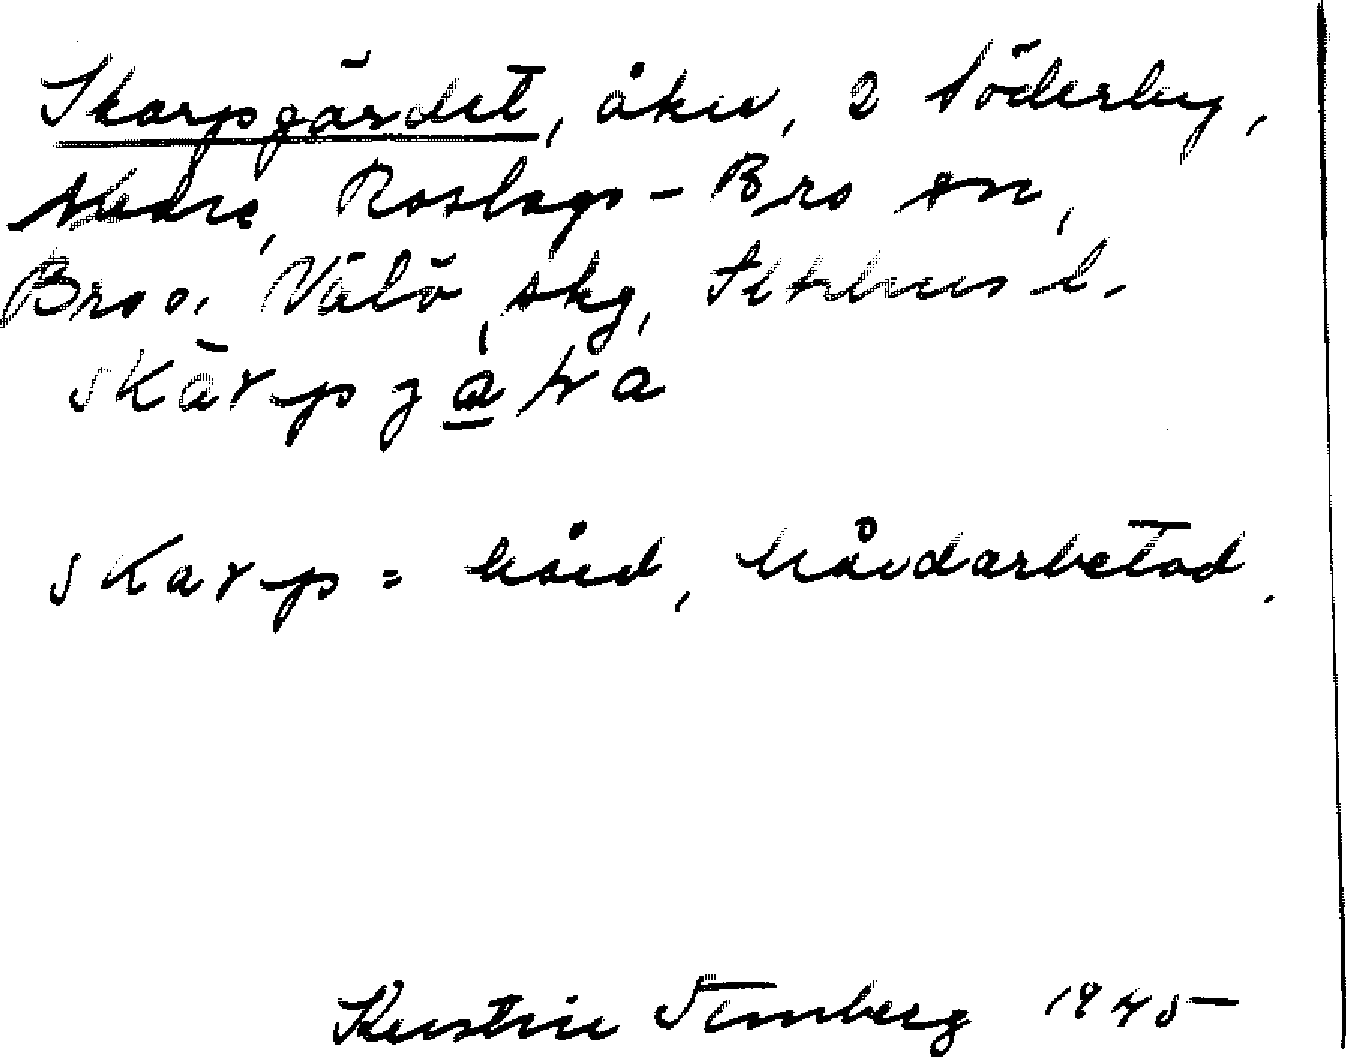 Skarpgärdet, åker, 2 Söderby,
Nedre, Roslags-Bro sn,
Bro o. Vätö skg, Sthlms l.
skärpgäḷa
skarp = hård, hårdarbetad.
Kerstin Stenberg 1945